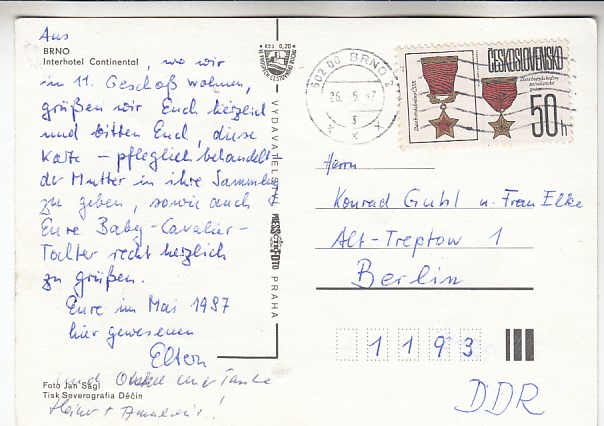 Aus
BRNO
Interhotel Continental, wo wir
im 11. Geschoß wohnen,
grüßen wir Euch herzlich
und bitten Euch, diese
Karte – pfleglich behandelt –
der Mutter in ihre Sammlung
zu geben, sowie auch
Eure Baby-Cavalier-
Tochter recht herzlich
zu grüßen.
Eure im Mai 1987
hier gewesenen
Eltern
und Onkel und Tante
Foto Jan Ságl
Tisk Severografia Děčín
Kčs 0,20
VYDAVATELSTVÍ
PRESSFOTO
PRAHA
602 00 BRNO 2
26. 5. 87
3
ČESKOSLOVENSKO
50h
Herrn
Konrad Guhl u. Frau Elke
Alt-Treptow 1
Berlin
1193
DDR